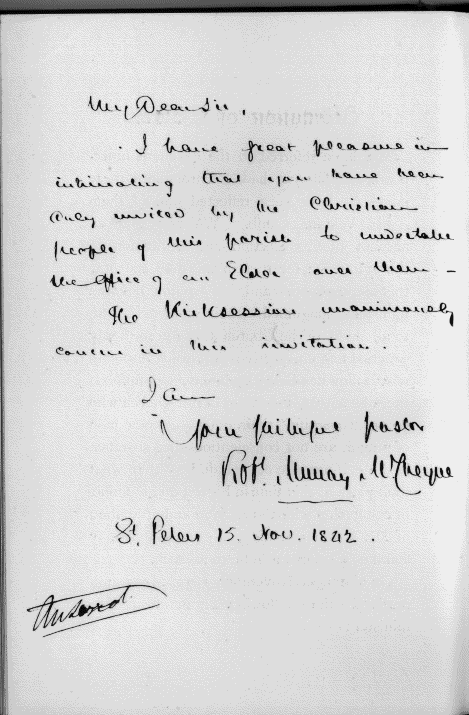 My Dear Sir,
I have great pleasure in
intimating that you have been
duly invited by the Christian
people of this parish to undertake
the office of an Elder over them –
The Kirksession unanimously
concur in this invitation.
I am
Your faithful pastor
Robt. Murray McCheyne
St. Peters 15. Nov. 1842.
Answered.